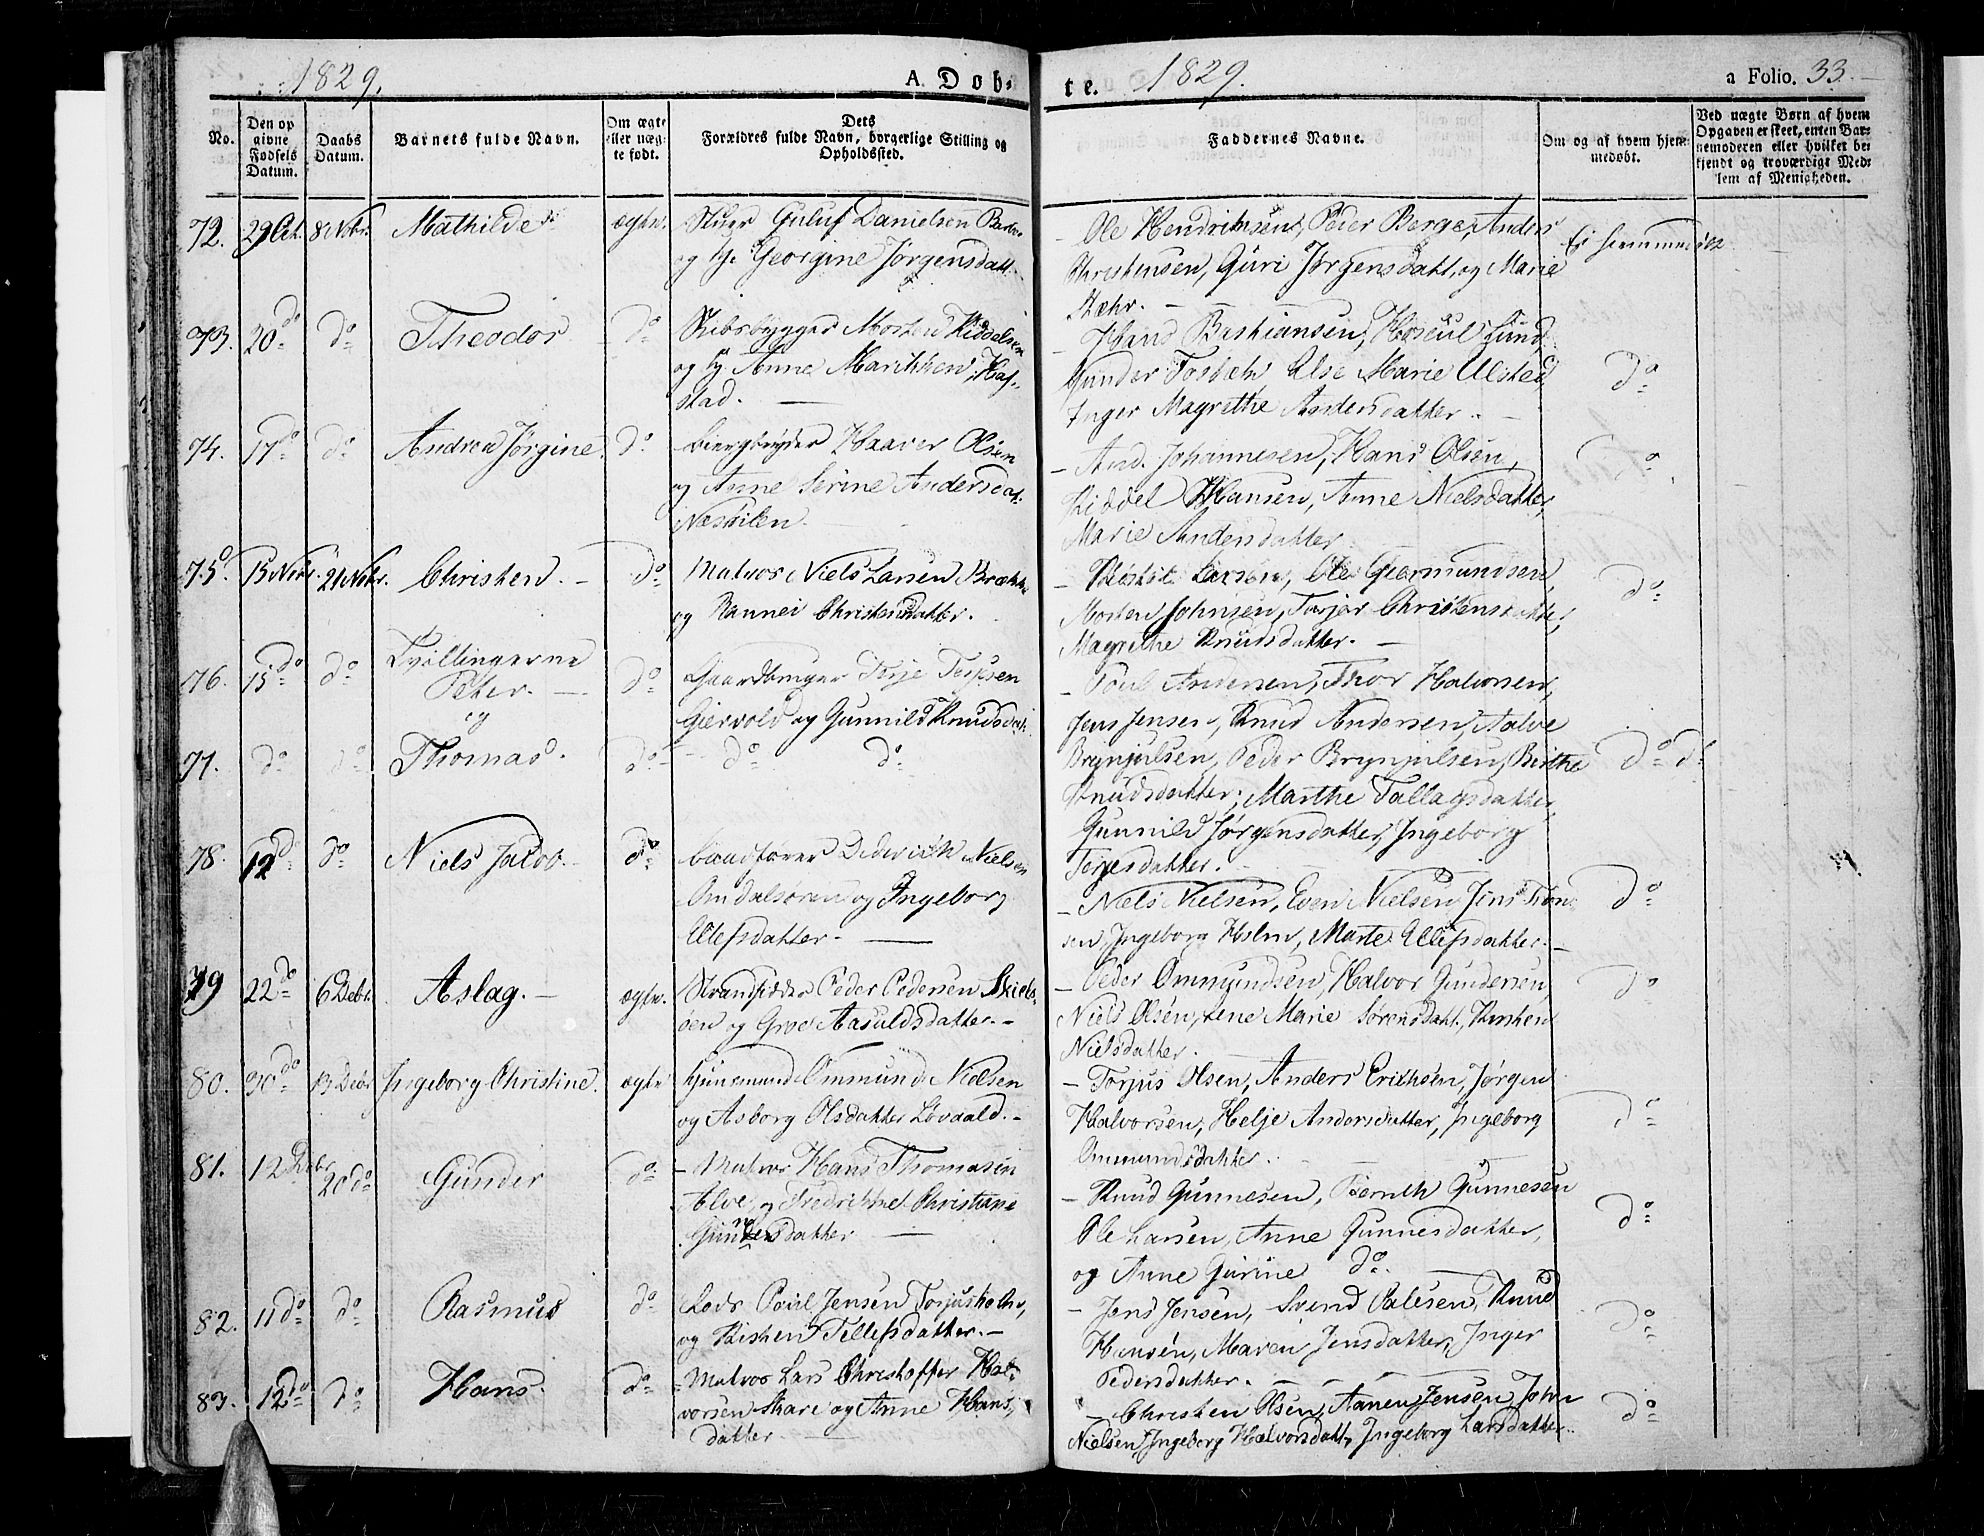 1829.
A. Dob-
te.
1829.
a Folio. 33.
No.
Den opgivne Fødsels Datum.
Daabs Datum.
Barnets fulde Navn.
Om ægte eller uægte født.
Dets Forældres fulde Navn, borgerlige Stilling og Opholdssted.
Faddernes Navne.
Om og af hvem hjemmedøbt.
Ved uægte Børn af hvem Opgaven er skeet, enten Barnemoderen eller hvilket bekjendt og troværdigt Medlem af Menigheden.
72. 8 Nobr. Mathilde ægte. Guluf Danielsen
og Georgine Jørgensdatt.
Ole Hendrichsen, Peder Berge, Anders
Christensen, Guri Jørgensdatt, og Marie
73. do do Theodor do Skibsbygger Morten Kiddelsen
og Anne Marikken, Has-
stad.
Hans Bastiansen, Lund,
Gunder Else Marie Ulsted
Inger Magrethe Andersdatter.
do
74. 17 do do Andrea Jørgine. do Haaver Olsen
og Anne Serine Andersdat.
Neskilen.
And. Johannesen, Hans Olsen,
Kiddel Hansen, Anne Nielsdatter,
Marie Andersdatter
do
75. 21 Nobr. Christen. do Matros Niels Larsen
og Rannei Christensdatter.
Larsen, Ole Germundsen
Morten Johnsen, Torjer Christensdatter,
Magrethe Knudsdatter.
do
76. 15 do do Tvillingerne
Peter.
og
do Gaardbruger Terje Terjesen
Giervold og Gunnild Knudsdat.
Poul Andersen, Thor Halvorsen,
Jens Jensen, Knud Andersen, Aalve
77. do do Thomas. do do do
Brynjulsen, Peder Brynjulsen, Birthe
Knudsdatter, Marthe Tallagsdatter,
Gunnild Jørgensdatter, Ingeborg
Terjesdatter.
do do
78. 12 do do Niels Jacob. do Dederich Nielsen
Omdalsøren og Ingeborg
Ellefsdatter.
Niels Nielsen, Even Nielsen, Jens
sen, Ingeborg Holm, Marte Ellefsdatter.
do
79 22 do 6 Debr. Aslag. ægte. Strandsidder Peder Pedersen
øen og Groe Aasuldsdatter.
Peder Ommundsen, Halvor Gundersen,
Niels Olsen, Lene Marie Sørensdatt, Kirsten
Nielsdatter.
do
80. 30 do 13 Debr Ingeborg Christine. ægte Huusmand Ommund Nielsen
og Asborg Olsdatter Løvdald.
Torjus Olsen, Anders Erichsen, Jørgen
Halvorsen, Helje Andersdatter, Ingeborg
Ommundsdatter.
do
81. 12 Debr 20 do Gunder do Matros Hans Thomasen
Alve, og Fredrikke Christiane
Gundersdatter
Knud Gunnesen, Bernth Gunnesen
Ole Larsen, Anne Gunnesdatter,
og Anne Gurine do.
do
82. 11 do do Rasmus do Lods Poul Jensen Torjusholm,
og Kirsten Tellefsdatter.
Jens Jensen, Svend Palesen, Knud
Hansen, Maren Jensdatter, Inger
Pedersdatter.
do
83. 12 do do Hans. do Matros Lars Christoffer Hal-
vorsen Skare og Anne Hans-
datter
Christen Olsen, Aanen Jensen, John
Nielsen, Ingeborg Halvorsdatt, Ingeborg Larsdatter.
do